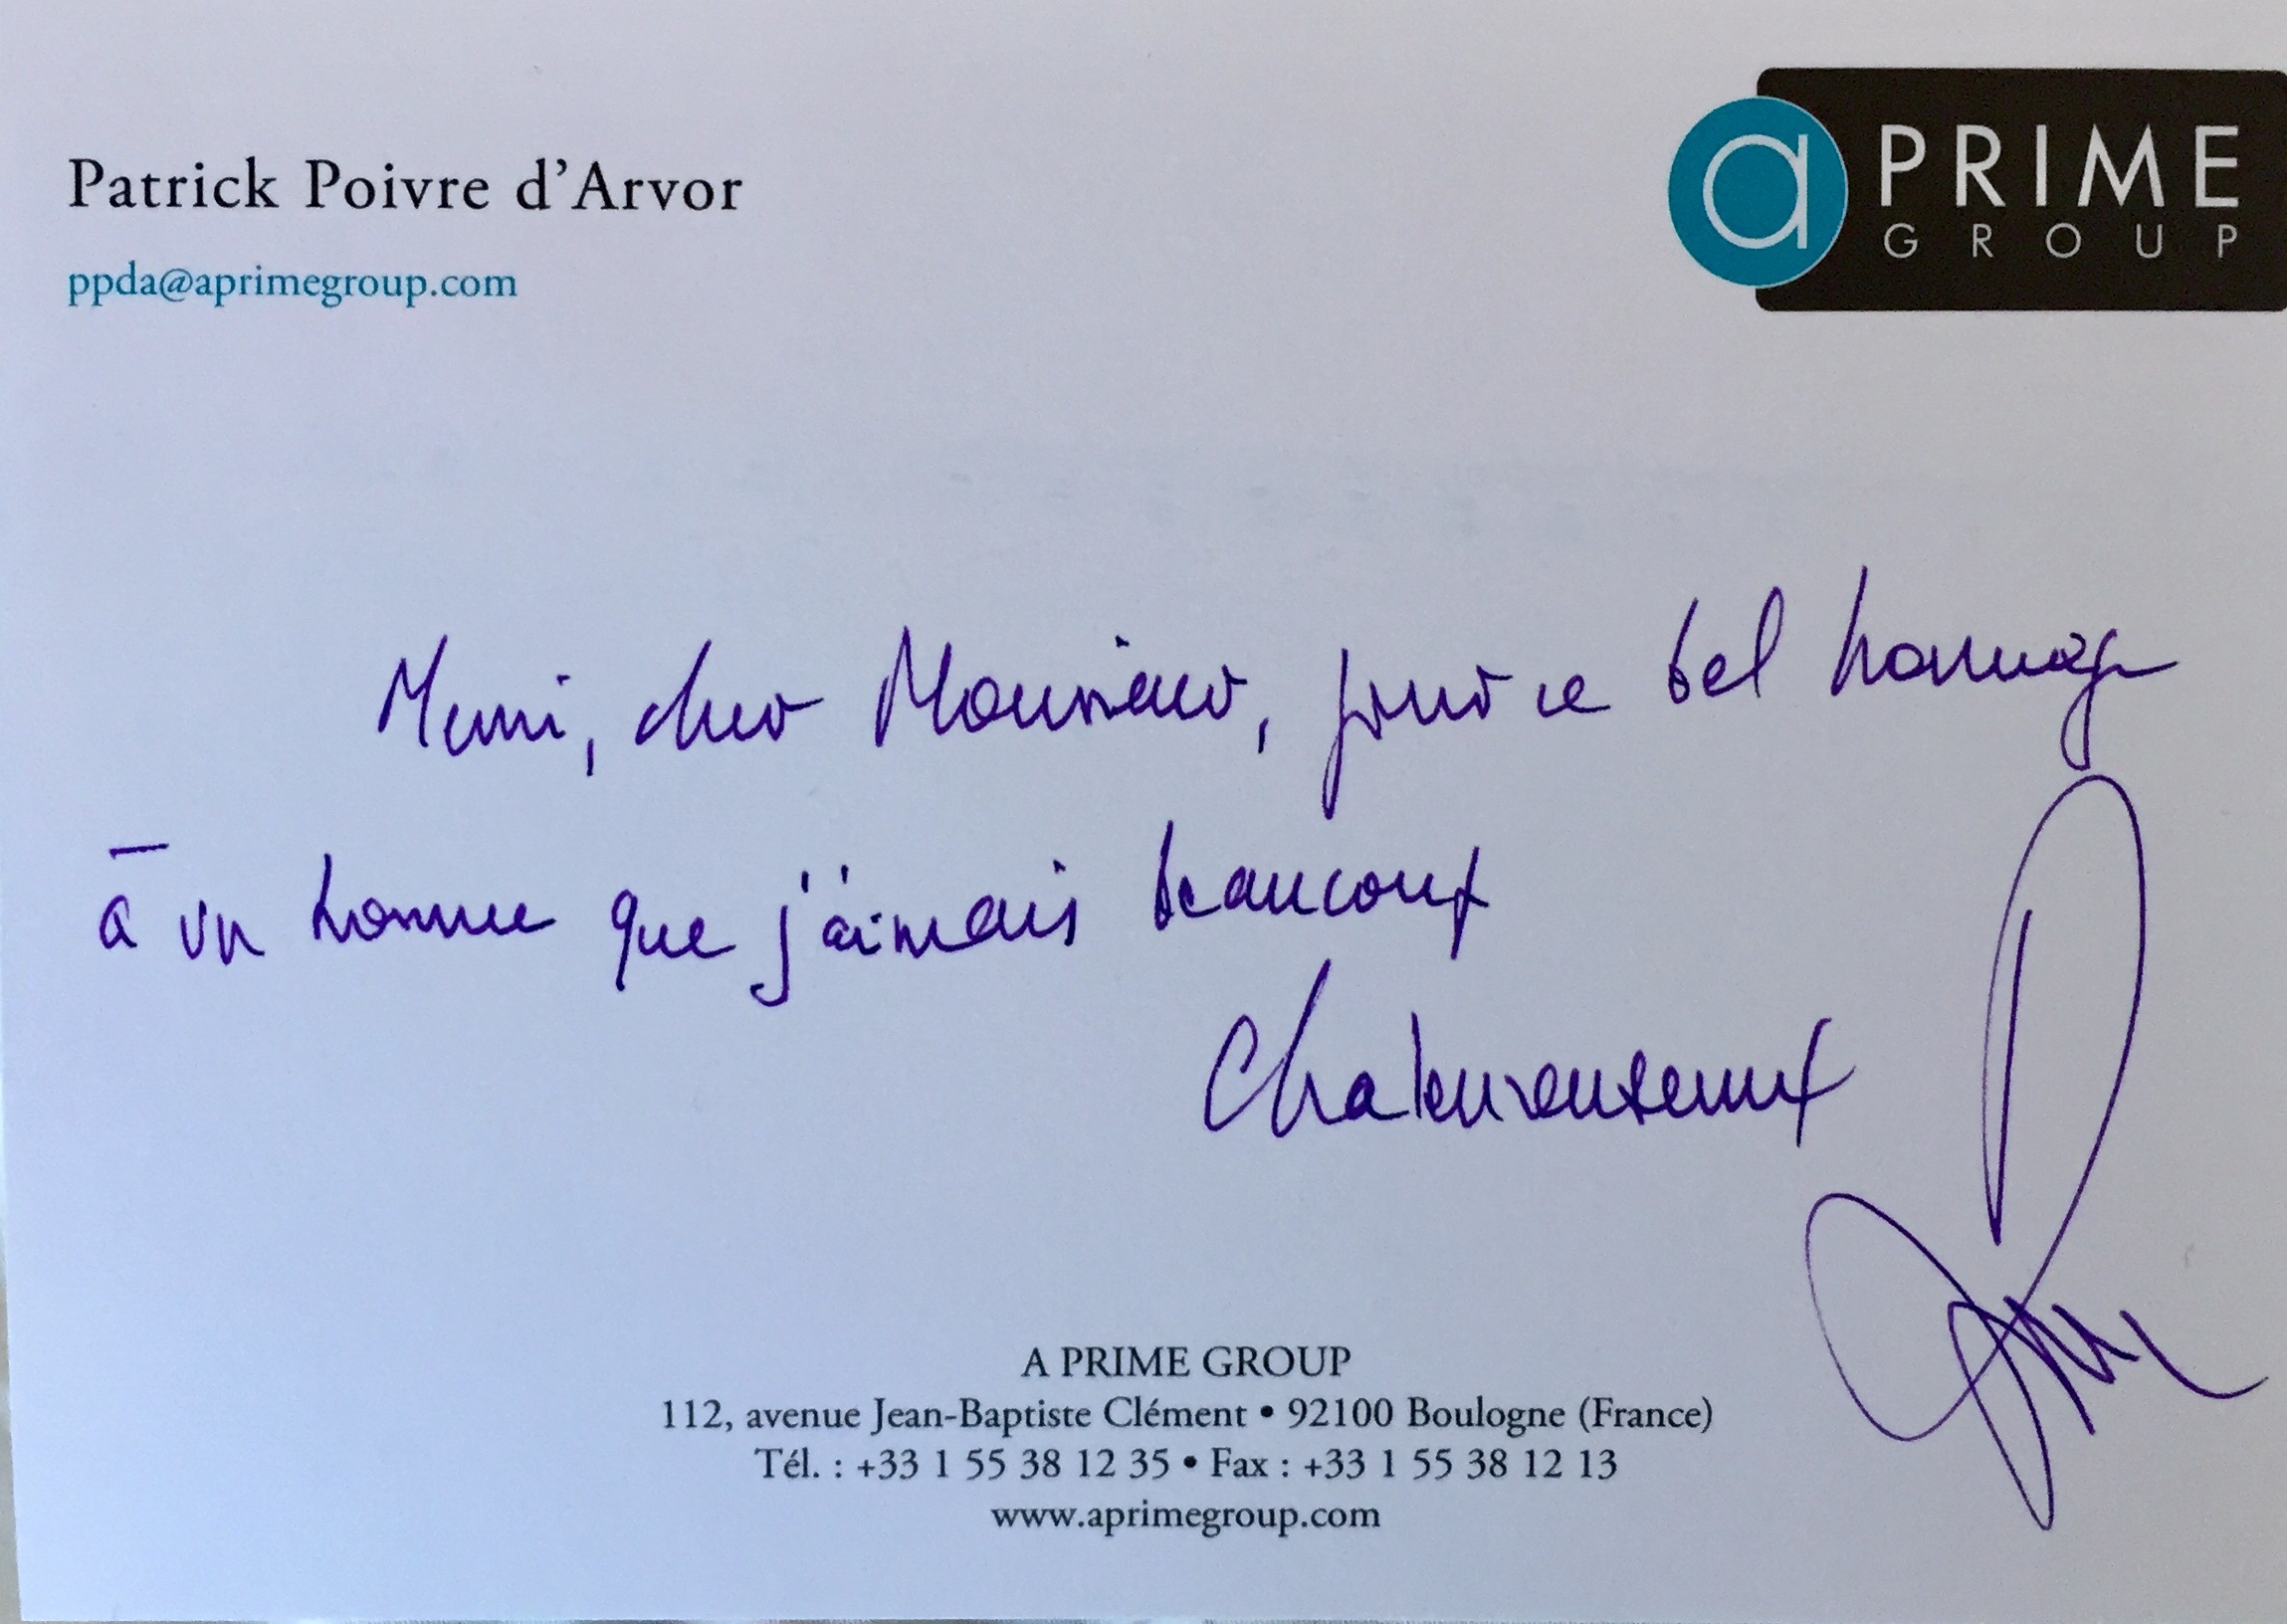 Patrick Poivre d'Arvor
ppda@aprimegroup.com
a PRIME
GROUP
Merci, cher Monsieur, pour ce bel hommage
à un homme que j'aimais beaucoup
Chaleureusement
A PRIME GROUP
112, avenue Jean-Baptiste Clément • 92100 Boulogne (France)
Tél. : +33 1 55 38 12 35 • Fax : +33 1 55 38 12 13
www.aprimegroup.com